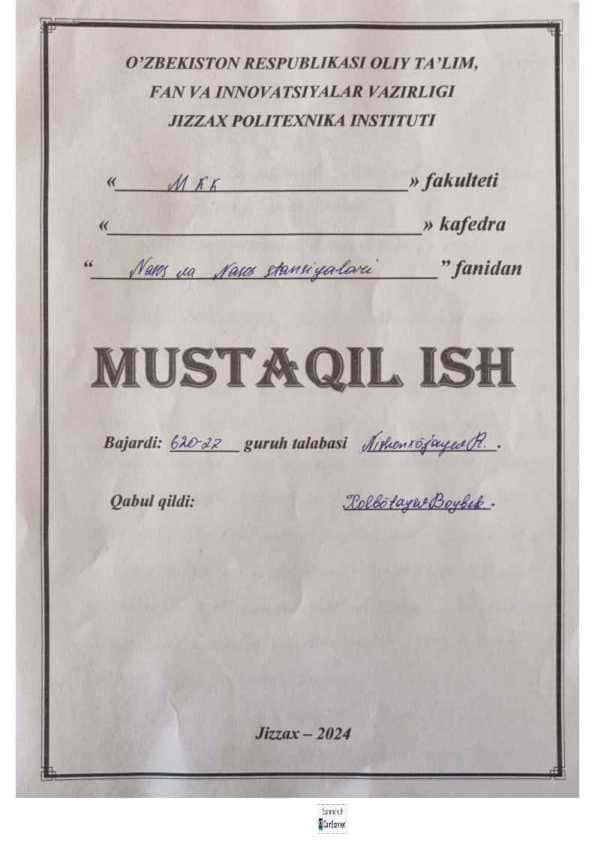 O'ZBEKISTON RESPUBLIKASI OLIY TA'LIM,
FAN VA INNOVATSIYALAR VAZIRLIGI
JIZZAX POLITEXNIKA INSTITUTI
« M K K » fakulteti
« » kafedra
“ Nasos va Nasos stansiyalari ” fanidan
MUSTAQIL ISH
Bajardi: 620-22 guruh talabasi Nishonxõjayev R. .
Qabul qildi: Xolbõtayev Boybek .
Jizzax – 2024
CamScanner